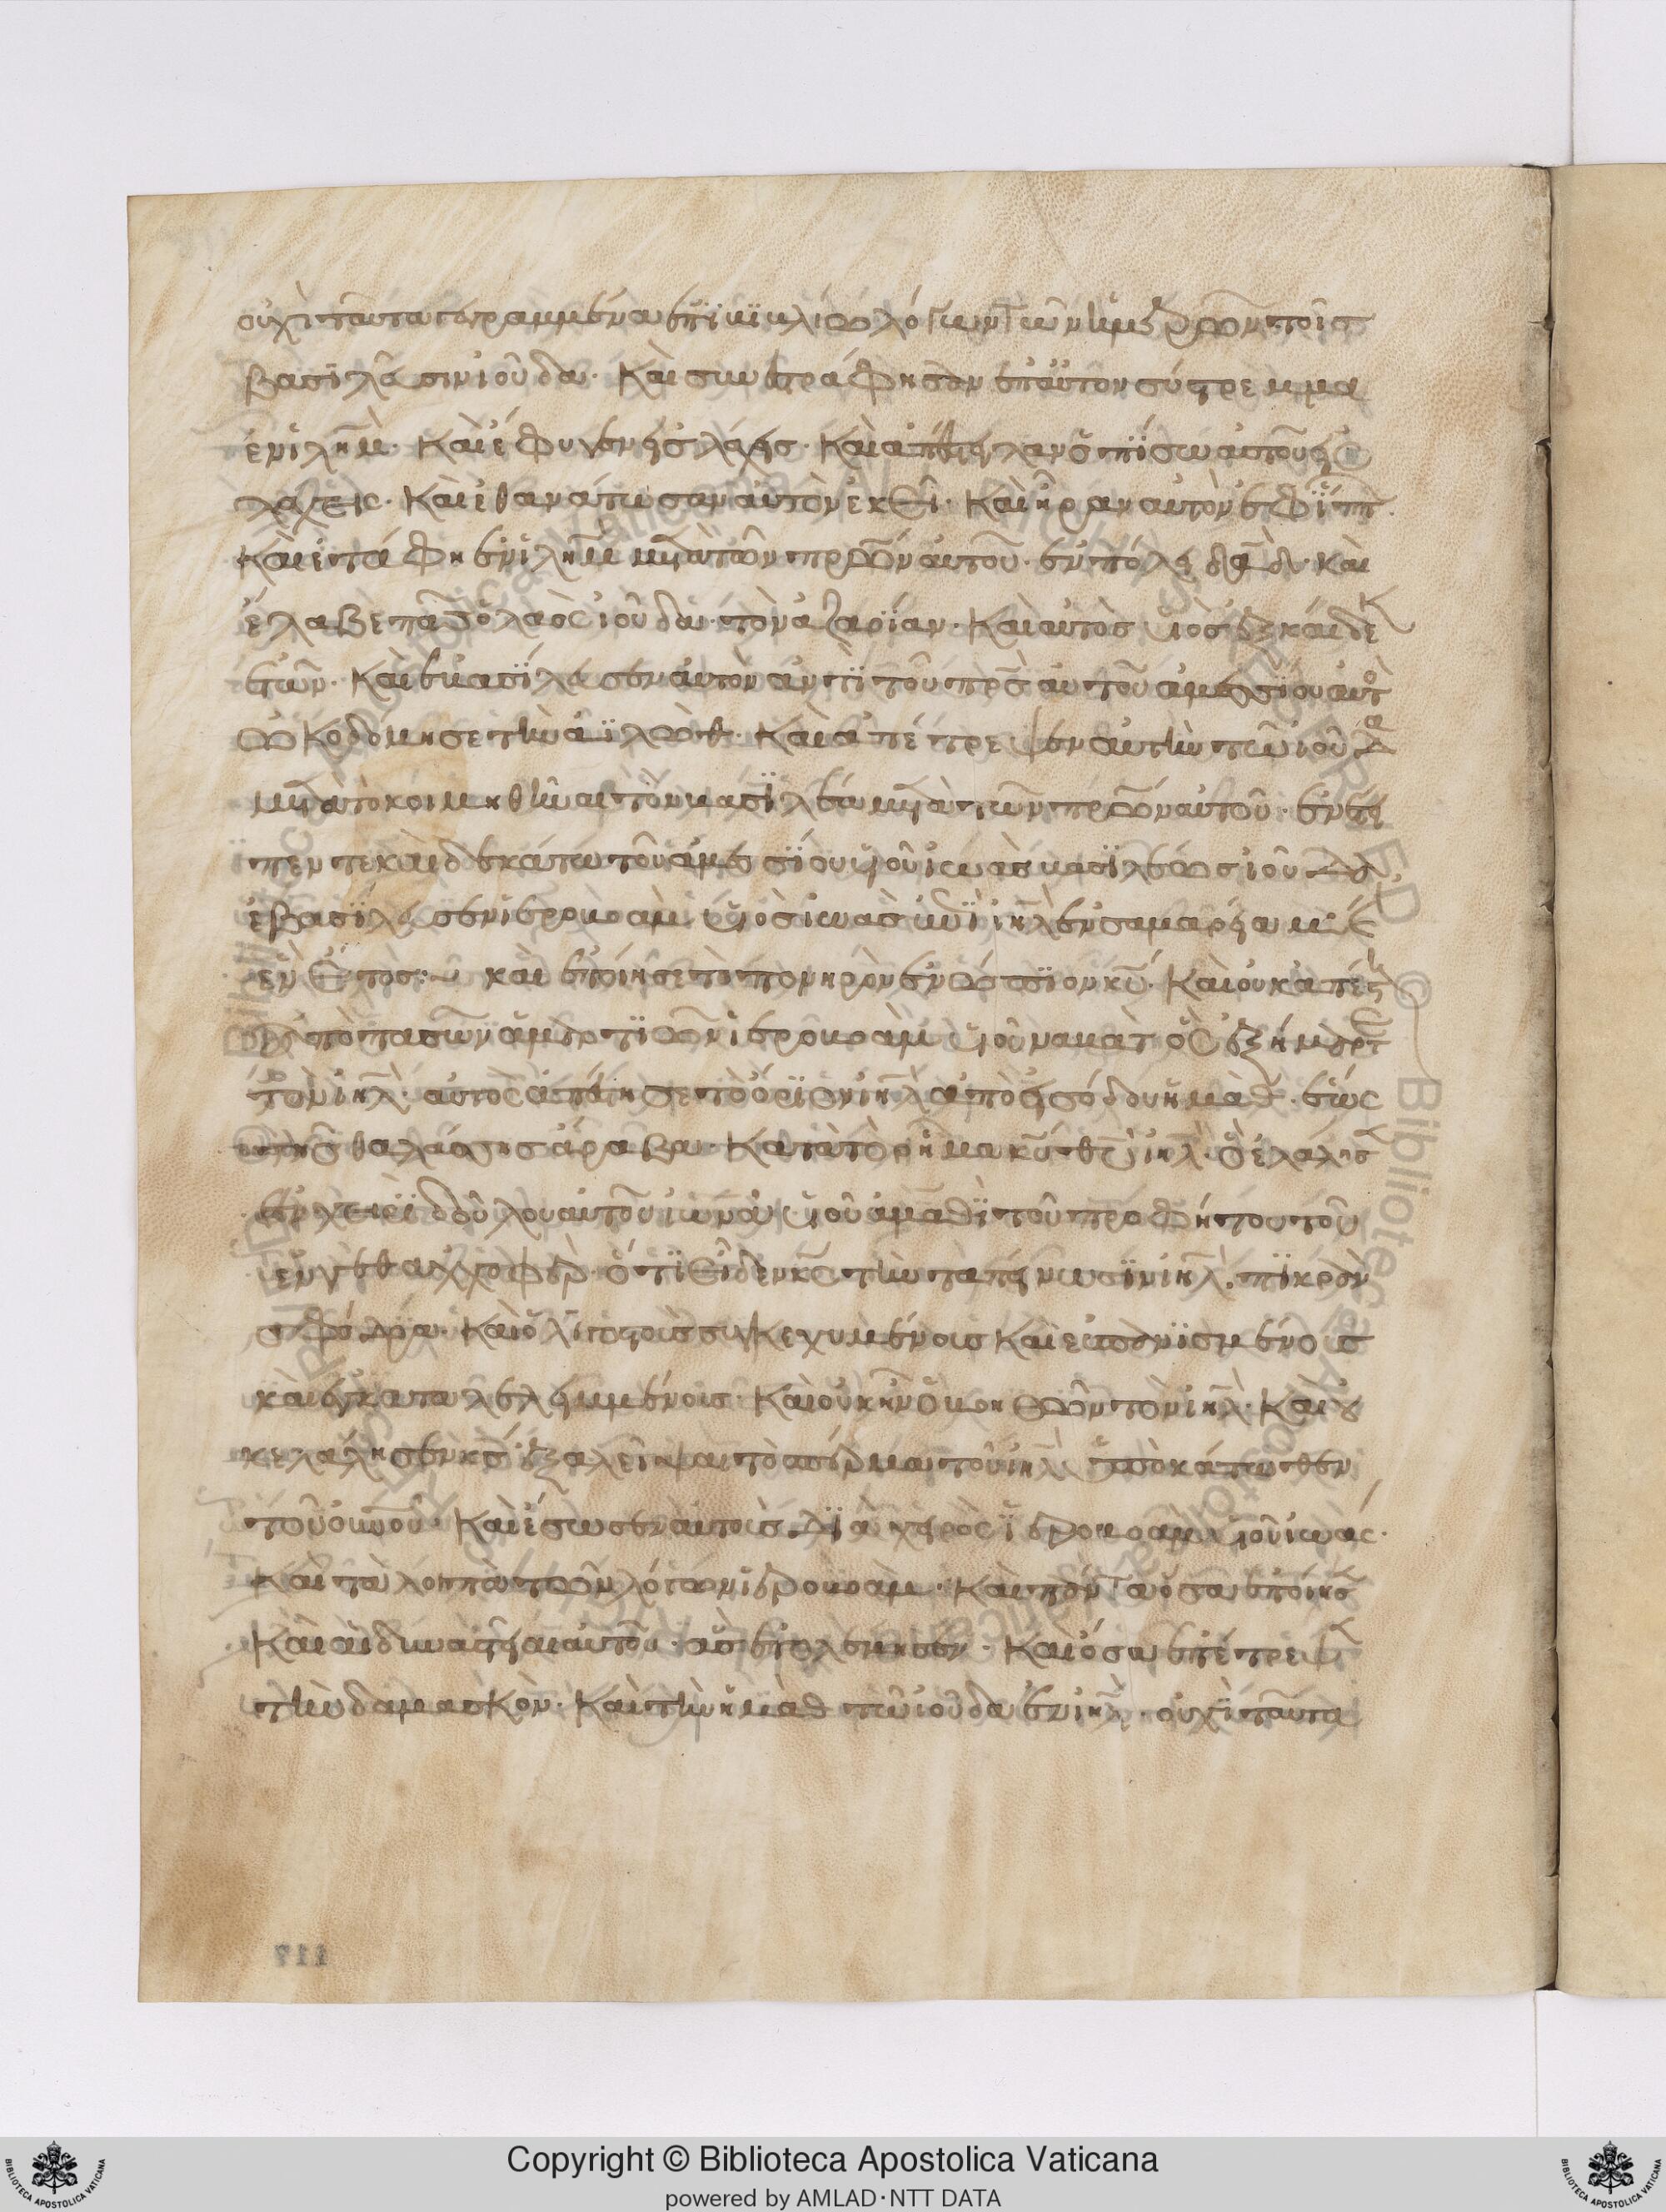 οὐχὶ ταῦτα γεγραμμένα ἐπὶ βιβλίω λόγων τῶν ἡμερῶν τοῖς
βασιλεῦσιν ἰούδα· καὶ συνεστράφησαν ἐπ αὐτὸν σύστρεμμα
ἐν ἰλημ· καὶ ἔφυγεν εἰς λαχεις· καὶ ἀπέστειλαν ὀπίσω αὐτοῦ εἰς
λαχεις· καὶ ἐθανάτωσαν αὐτὸν ἐκεῖ· καὶ ἦραν αὐτὸν ἐφ ἵππ
καὶ ἐτάφη ἐν ἰλημ μετὰ τῶν πρων αὐτοῦ· ἐν πόλει δαδ· καὶ
ἔλαβε πᾶς ὁ λαὸς ἰούδα τὸν ἀζαρίαν· καὶ αὐτὸς υἱὸς ἑκκαίδεκ
ἐτῶν· καὶ ἐβασίλευσεν αὐτὸν ἀντὶ τοῦ πρς αὐτοῦ ἀμεσίου αὐτὸ
ὠκοδόμησε τὴν αἰλὼθ· καὶ ἀπέστρεψεν αὐτὴν τῶ ἰούδα
μετὰ τὸ κοιμηθῆναι τὸν βασιλέα μετὰ τῶν πρων αὐτοῦ· ἐν ἔτει
πεντεκαιδεκάτω τοῦ ἀμεσίου υἱοῦ ἰωὰς βασιλέως ἰούδα
ἐβασίλευσεν ἱεροβοὰμ υἱὸς ἰωὰς ἐπὶ ιηλ ἐν σαμαρεία μ´ ϗ
ἓν ἔτος:~ καὶ ἐποίησε τὸ πονηρὸν ἐνώπιον κυ· καὶ οὐκ ἀπέστ
ἀπὸ πασῶν ἁμαρτιῶν ἱεροβοὰμ υἱοῦ ναβὰτ ὃς ἐξήμαρτ
τὸν ιηλ· αὐτὸς ἀπέστησε τὸ ὅριον ιηλ ἀπὸ εἰσόδου ημὰθ· ἕως
τῆς θαλάσσης ἄραβα· κατὰ τὸ ρῆμα κυ θυ ιηλ· ὃ ἐλάλησ
ἐν χειρὶ δούλου αὐτοῦ ἰωνᾶ υἱοῦ ἀμαθὶ τοῦ προφήτου τοῦ
ἐν γεθαχχοφὲρ· ὅτι εἶδεν κς τὴν ταπείνωσιν ιηλ· πικρὰν
σφόδρα· καὶ ὀλιγοστοὺς συγκεχυμένους καὶ ἐσπανισμένους
καὶ ἐγκαταλελειμμένους· καὶ οὐκ ἦν ὁ βοηθῶν τὸν ιηλ· καὶ οὐ
κ ἐλάλησεν κς ἐξαλεῖψαι τὸ σπέρμα τοῦ ιηλ ὑποκάτωθεν
τοῦ οὐνου· καὶ ἔσωσεν αὐτοὺς διὰ χειρὸς ἱεροβοὰμ υἱοῦ ἰωάς·
καὶ τὰ λοιπὰ τῶν λόγων ἱεροβοὰμ· καὶ πάντα ὅσα ἐποίησ
καὶ αἱ δυναστεῖαι αὐτοῦ· ὅσα ἐπολέμησεν· καὶ ὅσα ἐπέστρεψ
τὴν δαμασκὸν· καὶ τὴν ημὰθ τῶ ἰούδα ἐν ιηλ· οὐχὶ ταῦτα
117
Copyright © Biblioteca Apostolica Vaticana
powered by AMLAD·NTT DATA